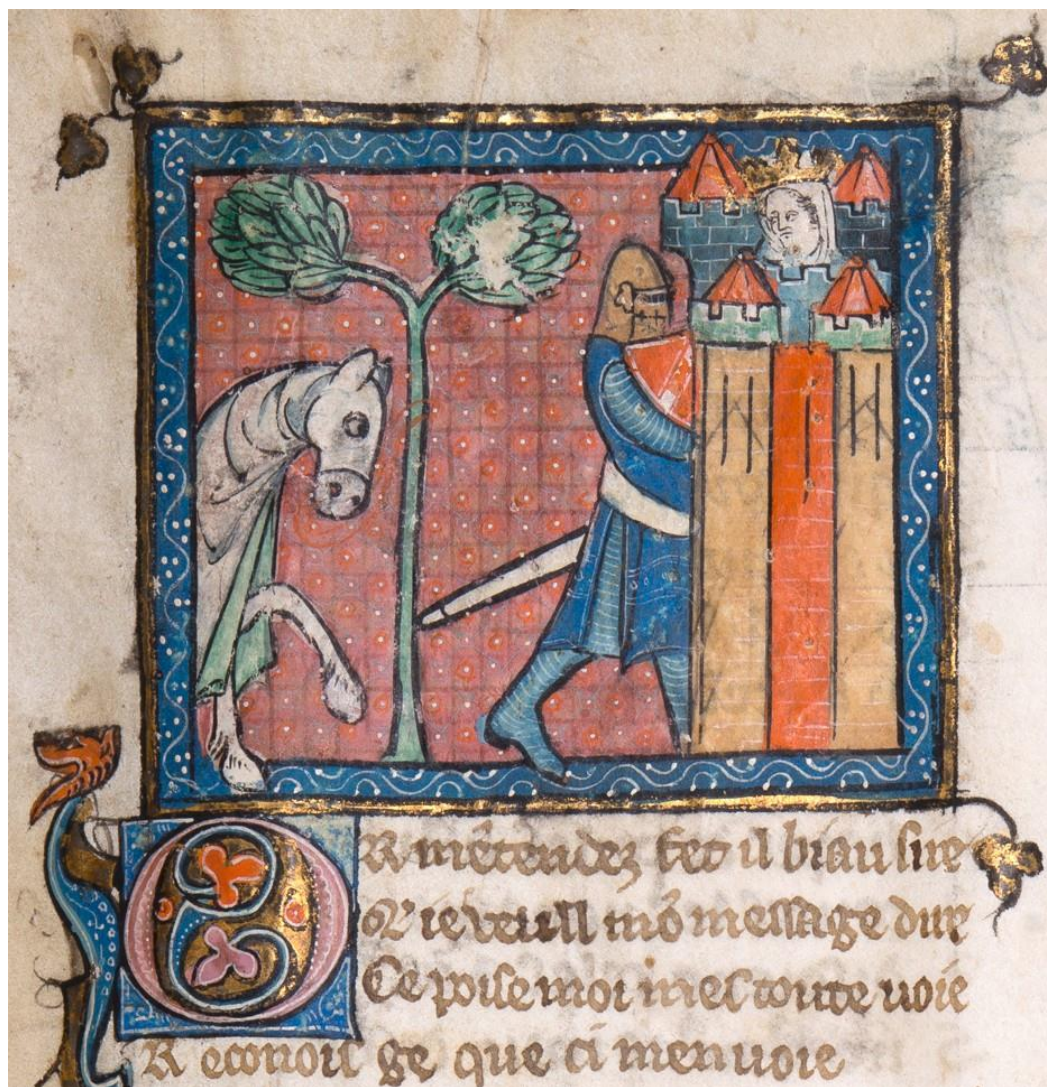 OR mētendez fet il biau sire
ie vueill mō message dire
Ce poise moi mes toute uoie
R econois ge que ci menuoie